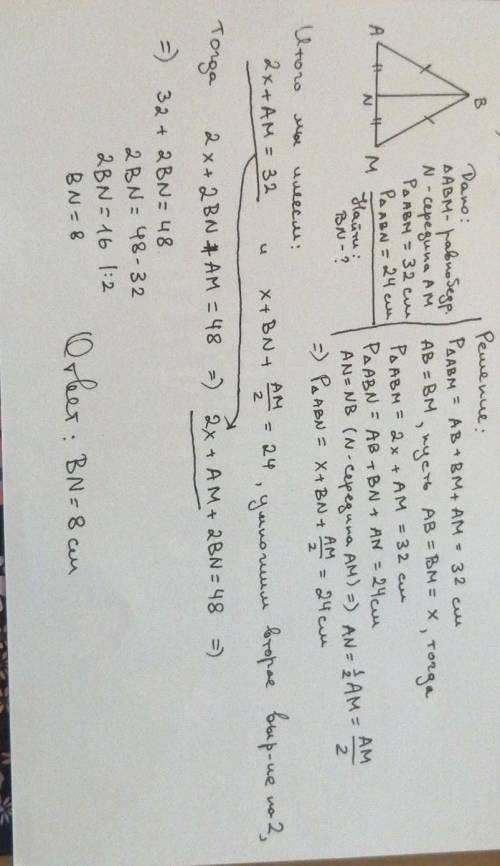 B
A
N
M
Дано:
△ABM - равнобедр.
N - середина AM
P△ABM = 32 см
P△ABN = 24 см
Найти:
BN - ?
Решение:
P△ABM = AB + BM + AM = 32 см
AB = BM, пусть AB = BM = x, тогда
P△ABM = 2x + AM = 32 см
P△ABN = AB + BN + AN = 24 см
AN = NB (N - середина AM) => AN = 1/2 AM = AM/2
=> P△ABN = x + BN + AM/2 = 24 см
Итого мы имеем:
2x + AM = 32 и x + BN + AM/2 = 24, умножим второе выр-ие на 2,
Тогда 2x + 2BN + AM = 48 => 2x + AM + 2BN = 48 =>
=> 32 + 2BN = 48
2BN = 48 - 32
2BN = 16 |:2
BN = 8
Ответ: BN = 8 см